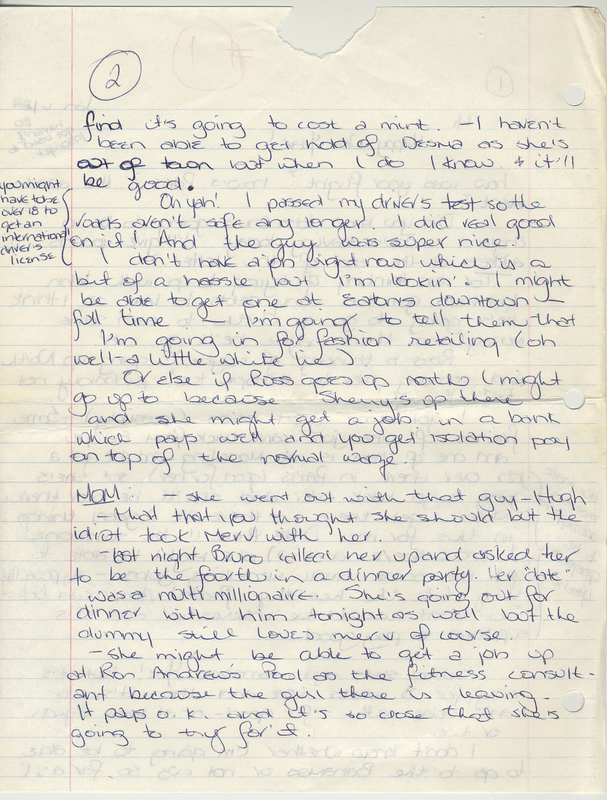 2
find it's going to cost a mint. - I haven't
been able to get hold of Desma as she's
out of town but when I do I know it'll
be good.
you might
have to be
over 18 to
get an
international
driver's
license
Oh yah! I passed my driver's test so the
roads aren't safe any longer. I did real good
on it! And the guy was super nice.
I don't have a job right now which is a
bit of a hassle but I'm lookin'. I might
be able to get one at Eaton's downtown -
full time - I'm going to tell them that
I'm going in for fashion retailing (oh
well - a little white lie)
Or else if Ross goes up north I might
go up to because Sherry's up there
and she might get a job in a bank
which pays well and you get isolation pay
on top of the normal wage.
MOM: - she went out with that guy - Hugh
- that that you thought she should but the
idiot took Merv with her.
- last night Bruno called her up and asked her
to be the fourth in a dinner party. Her "date"
was a multi millionaire. She's going out for
dinner with him tonight as well but the
dummy still loves merv of course.
- she might be able to get a job up
at Ron Andrews Pool as the fitness consult-
ant because the girl there is leaving.
It pays o.k. and it's so close that she's
going to try for it.